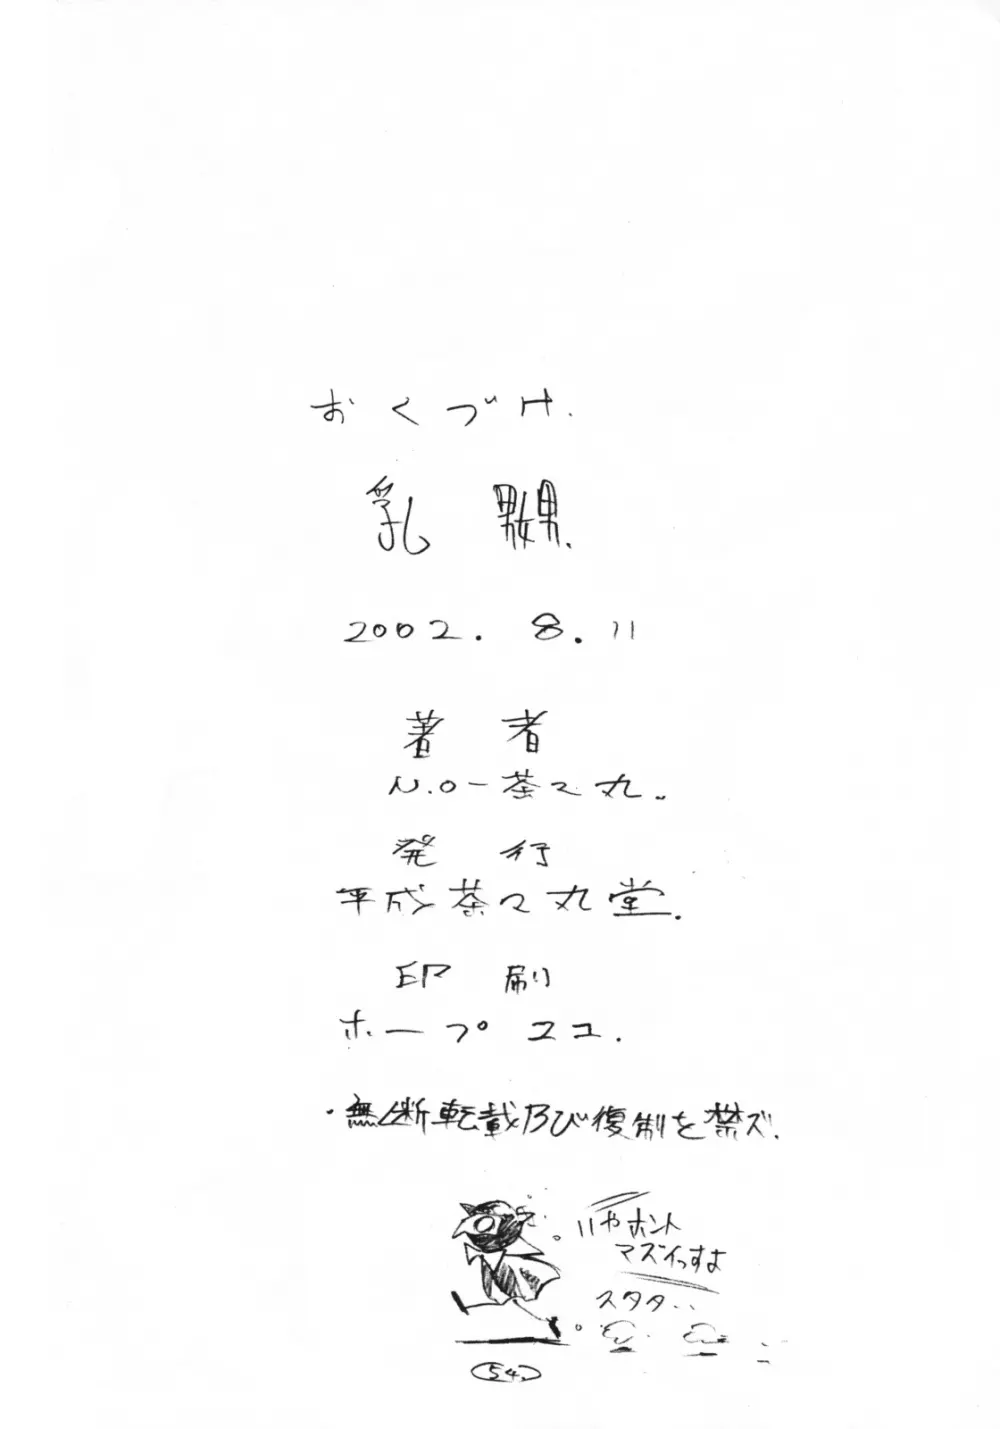 おくづけ.
乳 嬲.
2002. 8. 11
著 者
N.O-茶々丸.
発 行
平成茶々丸堂.
印 刷
ホープユユ.
・無断転載及び復制を禁ズ.
いやホント
マズイっすよ
スタタ..
54.